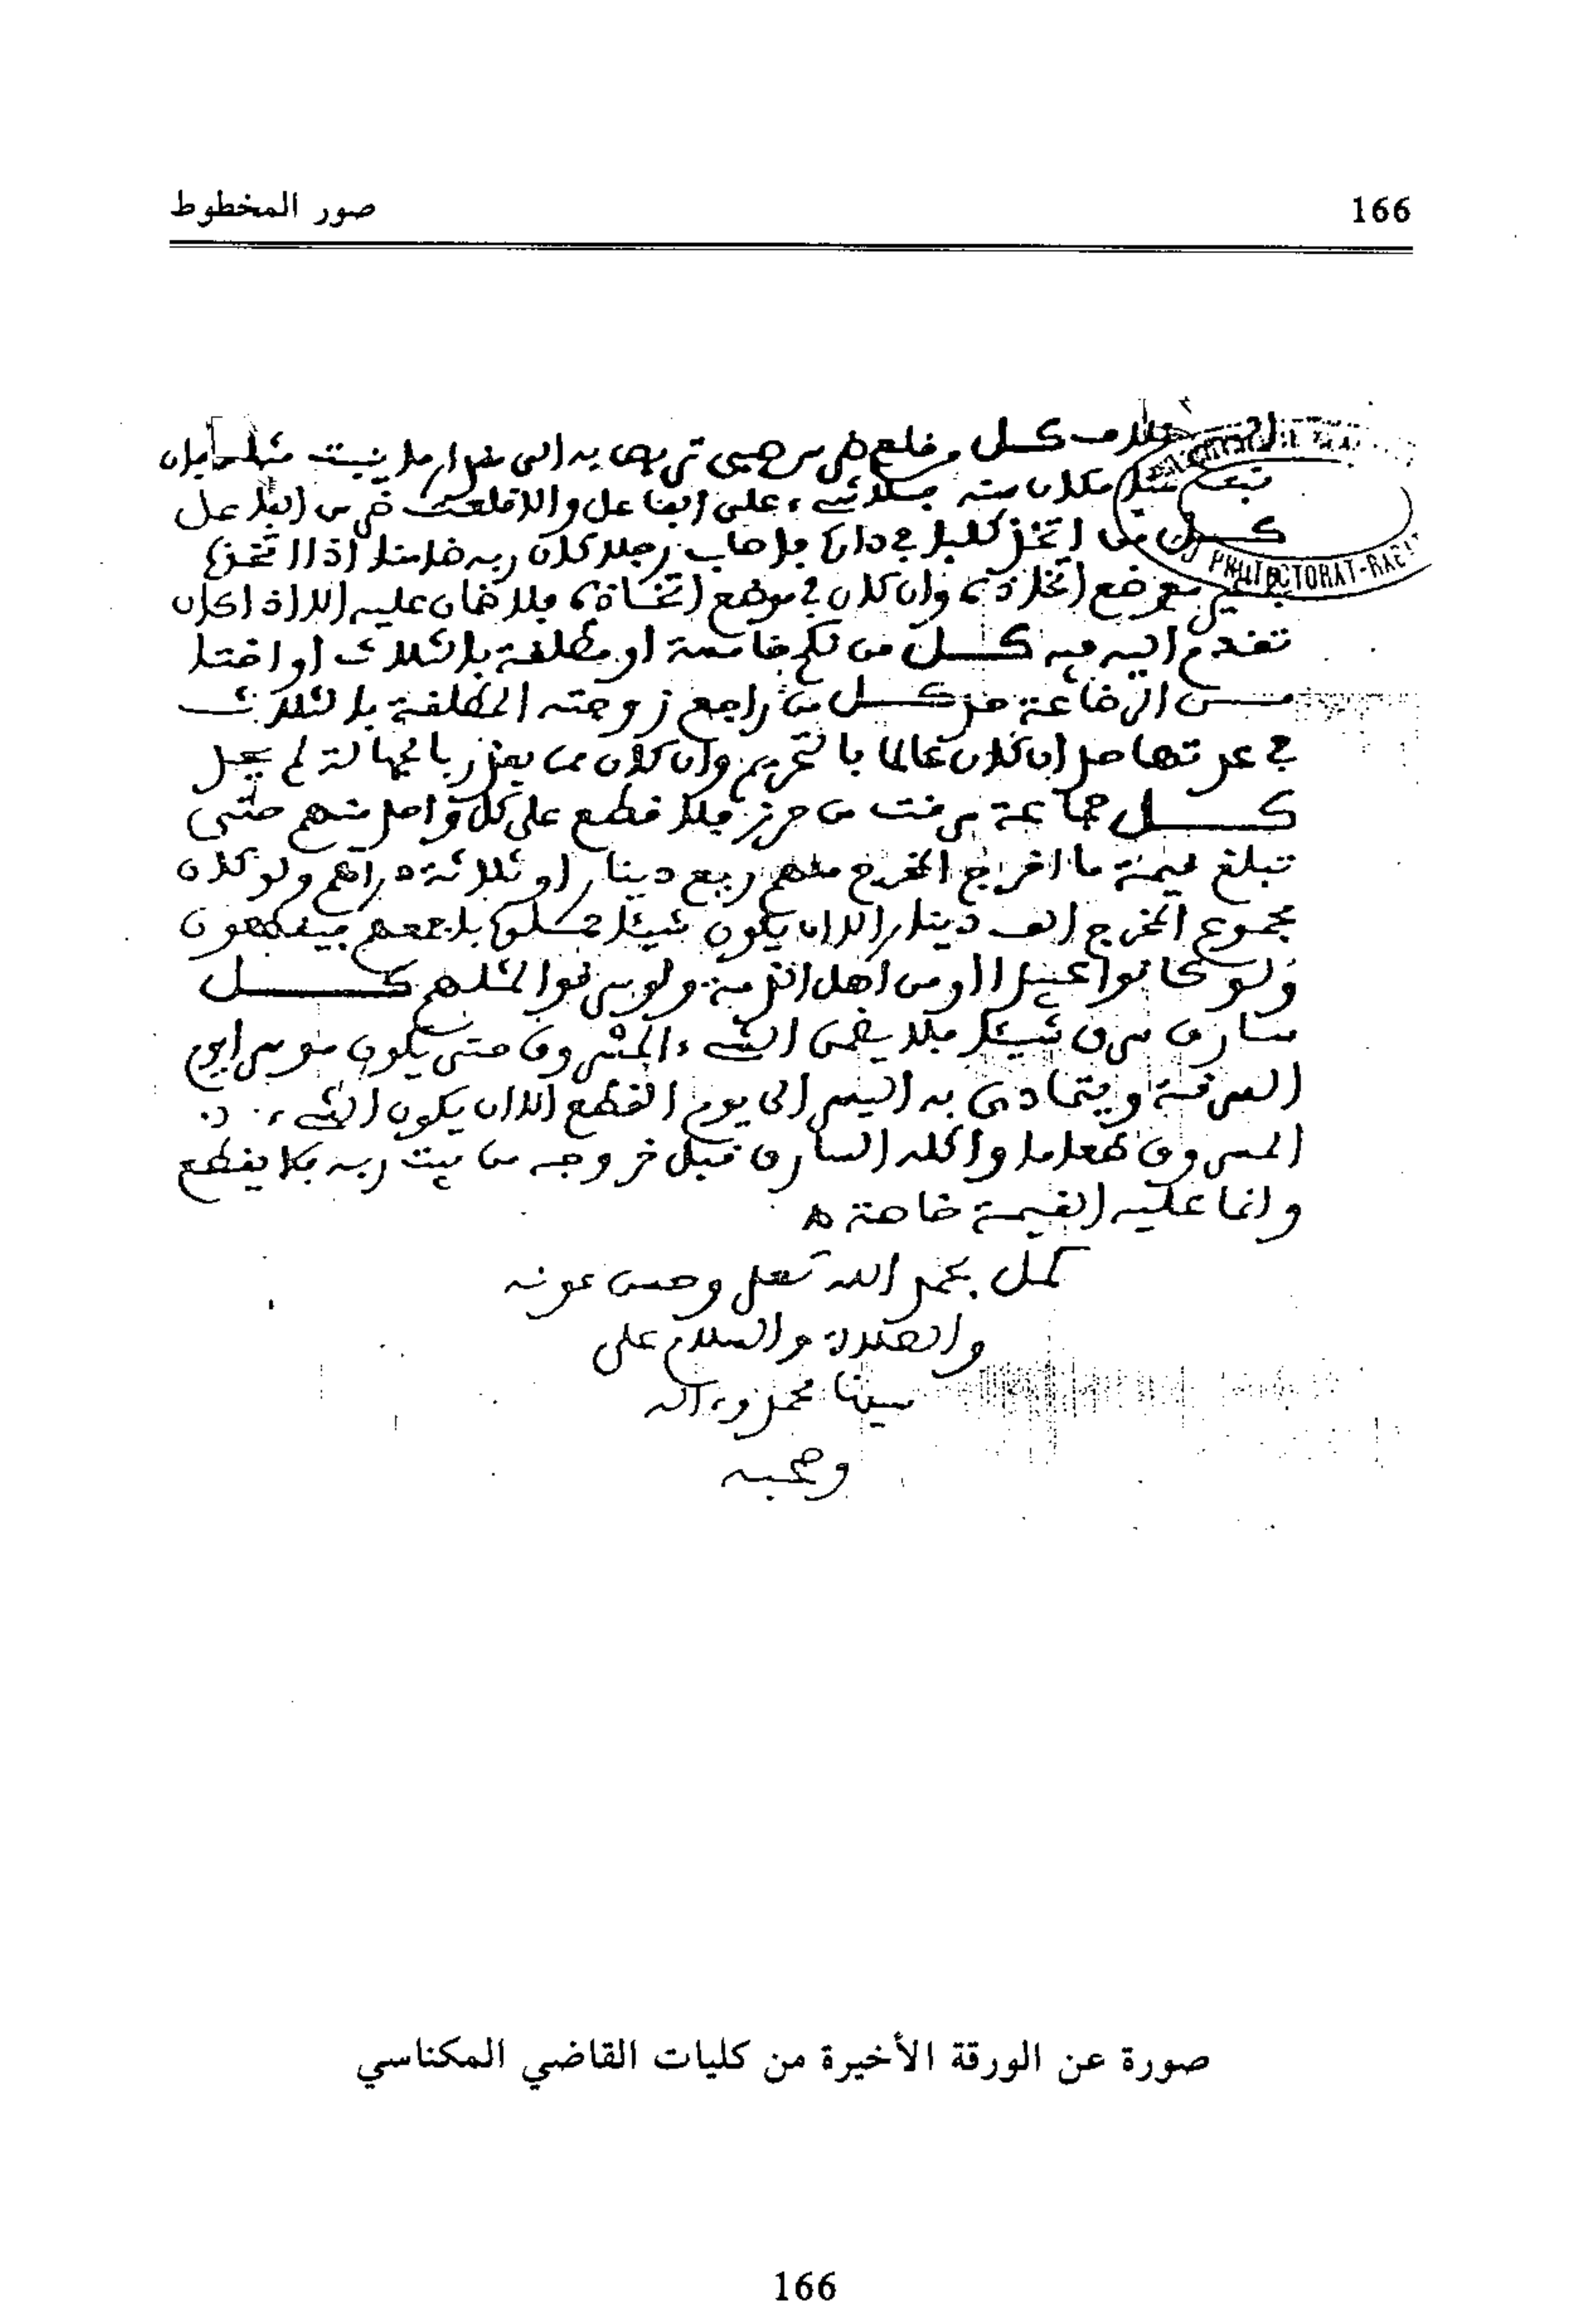 166
صور المخطوط
كل من قلع ضرس صبي تربص به الى مقدار ما نبتت مثلها فان
مكانها سنه فلا شيء على الفاعل والا قلعت ضرس الفاعل
كل من اتخذ كلبا في داره فاصاب رجلا كان ربه ضامنا اذا اتخذه
بغير موضع اتخاذه وان كان في موضع اتخاذه فلا ضمان عليه الا اذا كان
تقدم اليه فيه كل من نكح خامسة او مطلقة بالثلاث او اختا
من الرضاعة حد كل من راجع زوجته المطلقة بالثلاث
في عدتها حد ان كان عالما بالتحريم وان كان ممن يعذر بالجهالة لم يحد
كل جماعة سرقت من حرز فلا قطع على كل واحد منهم حتى
تبلغ قيمة ما اخرج المخرج منهم ربع دينار او ثلاثة دراهم ولو كان
مجموع المخرج الف دينار الا ان يكون شيئا حملوه باجمعهم فيقطعون
ولو كانوا عبيدا او من اهل الذمة ولو سرقوا لمثلهم كل
سارق سرق شيئا فلا يضمن الشيء المسروق حتى يكون موسرا يوم
السرقة ويتمادى به اليسر الى يوم القطع الا ان يكون الشيء
المسروق طعاما واكله السارق قبل خروجه من بيت ربه فلا يقطع
وانما عليه القيمة خاصة ه
كمل بحمد الله تعلى وحسن عونه
والصلاة والسلام على
سيدنا محمد وءاله
وصحبه
PROTECTORAT-RABAT
صورة عن الورقة الأخيرة من كليات القاضي المكناسي
166